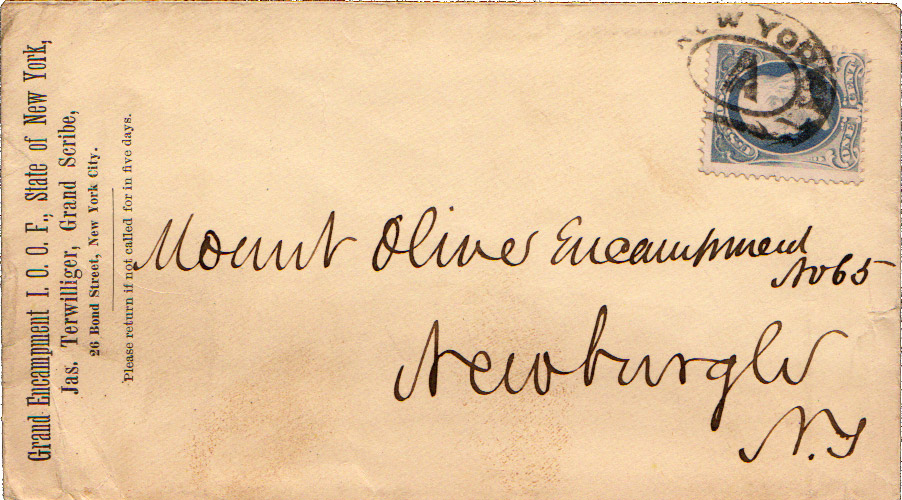 Grand Encampment I. O. O. F., State of New York,
Jas. Terwilliger, Grand Scribe,
26 Bond Street, New York City.
Please return if not called for in five days.
NEW YORK
Mount Olive Encampment
No 65
Newburgh
N.Y